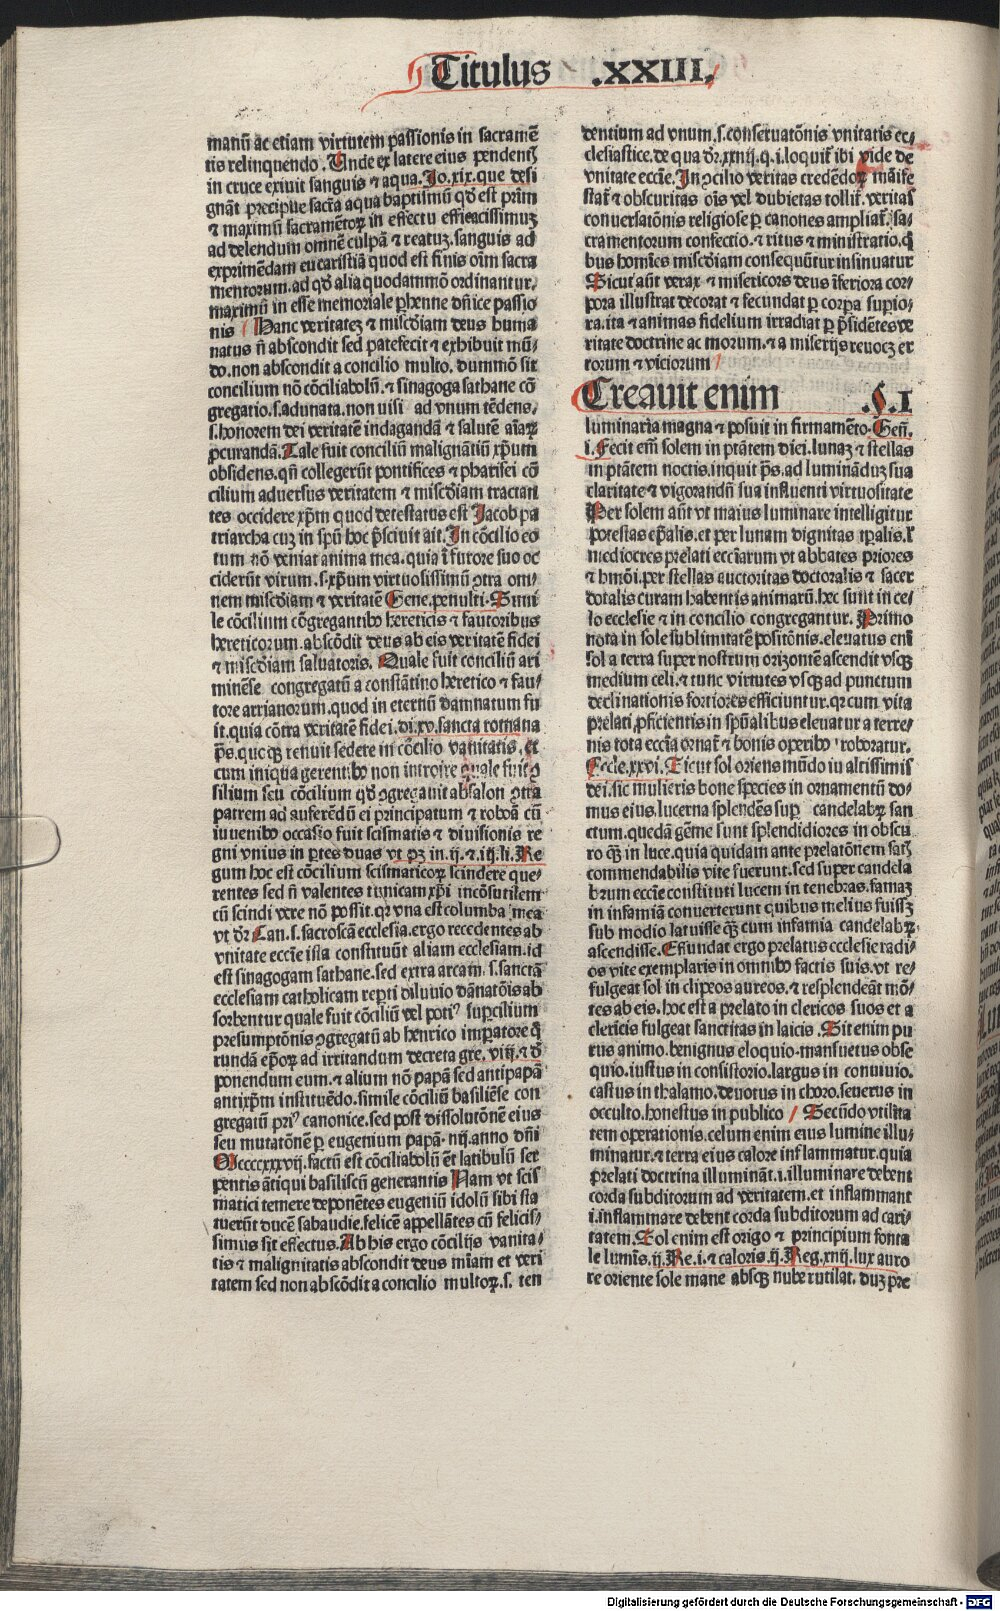 Titulus .XXIII.
manū ac etiam virtutem passionis in sacramē
tis relinquendo. Unde ex latere eius pendentꝭ
in cruce exiuit sanguis ⁊ aqua. Jo. xix. que desi
gnāt precipue sacr̄a aqua baptismū qd̓ est prim̄
⁊ maximū sacramētoꝝ in effectu efficacissimuꝫ
ad delendum omnē culpā ⁊ reatuꝫ. sanguis ad
exprimēdam eucaristiā quod est finis oīm sacra
mentorum. ad qd̓ alia quodammō ordinantur.
maximū in esse memoriale ꝑhenne dn̄ice passio
nis Hanc veritateꝫ ⁊ mis̄cdiam deus huma
natus n̄ abscondit sed patefecit ⁊ exhibuit mū/
do. non abscondit a concilio multo. dummō sit
concilium nō cōciliabolū. ⁊ sinagoga sathane cō
gregatio. s. adunata. non uisi ad vnum tēdens.
s. honorem dei veritatē indagandā ⁊ salutē aīaꝝ
ꝓcurandā. Tale fuit conciliū malignātiū xp̄um
obsidens. qn̄ collegerūt pontifices ⁊ pharisei cō
cilium aduersus veritatem ⁊ mis̄cdiam tractan
tes occidere xp̄m quod detestatus est Jacob pa
triarcha cuꝫ in spū hoc p̄sciuit ait. In cōcilio eo
tum nō veniat anima mea. quia ī furore suo oc
ciderūt virum. s. xp̄um virtuosissimū ↄtra om/
nem mis̄cdiam ⁊ veritatē Gene. penulti. Simi
le cōcilium cōgregantibꝰ hereticis ⁊ fautoribus
hereticorum. abscōdit deus ab eis veritatē fidei
⁊ mis̄cdiam saluatoris. Quale fuit conciliū ari
minēse congregatū a constātino heretico ⁊ fau/
tore arrianorum. quod in eternū damnatum fu
it. quia cōtra veritatē fidei. di. xv. sancta romana
p̄s. quoqꝫ renuit sedere in cōcilio vanitatis. et
cum iniqua gerentibꝰ non introire quale fuit ↄ
silium seu cōcilium qd̓ ↄgregauit absalon ↄtra
patrem ad auferēdū ei principatum ⁊ roboā cū
iuuenibꝰ occasio fuit scismatis ⁊ diuisionis re
gni vnius in ꝑtes duas vt pꝫ in. ij. ⁊. iij. li. Re
gum hoc est cōcilium scismaticoꝝ scindere que/
rentes sed n̄ valentes tunicam xp̄i incōsutilem
cū scindi vere nō possit. qꝛ vna est columba mea
vt dr̄ Can. s. sacroscā ecclesia. ergo recedentes ab
vnitate eccīe ista constituūt aliam ecclesiam. id
est sinagogam sathane. sed extra arcam. s. sanctā
ecclesiam catholicam reꝑti diluuio dānatōis ab
sorbentur quale fuit cōciliū vel potiꝰ suꝑcilium
presumptōnis ↄgregatū ab henrico imꝑatore q̄
rundā ep̄oꝝ ad irritandum decreta gre. viij. ⁊ d̓
ponendum eum. ⁊ alium nō papā sed antipapā
antixp̄m instituēdo. simile cōciliū basiliēse con
gregatū priꝰ canonice. sed post dissolutōnē eius
seu mutatōnē ꝑ eugenium papā. iiij. anno dn̄i
Mccccxxxvij. factū est cōciliabolū et latibulū ser
pentis ātiqui basiliscū generantis Nam vt scis
matici temere deponētes eugeniū idolū sibi sta
tuerūt ducē sabaudie. felicē appellātes cū felicis/
simus sit effectus. Ab his ergo cōcilijs vanita/
tis ⁊ malignitatis abscondit deus mīam et veri
tatem sed non abscōdit a concilio multoꝝ. s. ten
dentium ad vnum. s. conseruatōnis vnitatis ec/
clesiastice. de qua dr̄. xxiiij. q. i. loquit̄ ibi vide de
vnitate eccīe. In ↄcilio veritas credēdoꝝ māife
stat̄ ⁊ obscuritas oīs vel dubietas tollit̄. veritas
conuersatōnis religiose ꝑ canones ampliat̄. sa/
cramentorum confectio. ⁊ ritus ⁊ ministratio. q̄
bus homīes mis̄cdiam consequūtur insinuatur
Sicut aūt verax ⁊ misericors deus īferiora cor/
pora illustrat decorat ⁊ fecundat ꝑ corꝑa suꝑio/
ra. ita ⁊ animas fidelium irradiat ꝑ p̄sidētes ve
ritate doctrine ac morum. ⁊ a miserijs reuocꝫ er
rorum ⁊ viciorum
Creauit enim .§.I
luminaria magna ⁊ posuit in firmamēto. Geñ.
i. Fecit em̄ solem in ptātem diei. lunaꝫ ⁊ stellas
in ptātem noctis. inquit p̄s. ad luminādūꝫ sua
claritate ⁊ vigorandū sua influenti virtuositate
Per solem aūt vt maius luminare intelligitur
potestas ep̄alis. et per lunam dignitas īꝑalis. ł
mediocres prelati eccīarum vt abbates priores
⁊ hmōi. per stellas auctoritas doctoralis ⁊ sacer
dotalis curam habentis animarū. hec sunt in ce/
lo ecclesie ⁊ in concilio congregantur. Primo
nota in sole sublimitatē positōnis. eleuatus enī
sol a terra super nostrum orizontē ascendit vsqꝫ
medium celi. ⁊ tunc virtutes vsqꝫ ad punctum
declinationis fortiores efficiuntur. qꝛ cum vita
prelati ꝓficientis in spūalibus eleuatur a terre/
nis tota eccīa ornat̄ ⁊ bonis operibꝰ roboratur.
Eccle. xxvi. Sicut sol oriens mūdo iu altissimis
dei. sic mulieris bone species in ornamentū do/
mus eius. lucerna splendēs suꝑ candelabꝝ san
ctum. quedā gēme sunt splendidiores in obscu
ro q̄ꝫ in luce. quia quidam ante prelatōnem satꝭ
commendabilis vite fuerunt. sed super candela
brum eccīe constituti lucem in tenebras. famaꝫ
in infamiā conuerterunt quibus melius fuissꝫ
sub modio latuisse q̄ꝫ cum infamia candelabꝝ
ascendisse. Effundat ergo prelatus ecclesie radi/
os vite exemplaris in omnibꝰ factis suis. vt re/
fulgeat sol in clipeos aureos. ⁊ resplendeāt mō/
tes ab eis. hoc est a prelato in clericos suos et a
clericis fulgeat sanctitas in laicis. Sit enim pu
rus animo. benignus eloquio. mansuetus obse
quio. iustus in consistorio. largus in conuiuio.
castus in thalamo. deuotus in choro. seuerus in
occulto. honestus in publico Secūdo vtilita
tem operationis. celum enim eius lumine illu/
minatur. ⁊ terra eius calore inflammatur. quia
prelati doctrina illumināt. i. illuminare debent
corda subditorum ad veritatem. et inflammant
i. inflammare debent corda subditorum ad cari/
tatem. Sol enim est origo ⁊ principium fonta
le lumīs. ij. Re. i. ⁊ caloris. ij. Reg. xxiij. lux auro
re oriente sole mane absqꝫ nube rutilat. duꝫ pre
Digitalisierung gefördert durch die Deutsche Forschungsgemeinschaft - DFG